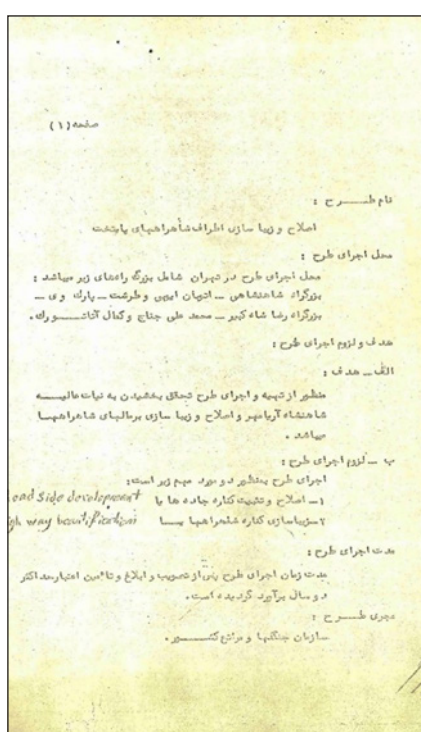 صفحه (۱)
نام طـــــرح :
اصلاح و زیبا سازی اطراف شاهراههای پایتخت
محل اجرای طرح :
محل اجرای طرح در تهران شامل بزرگ راههای زیر میباشد :
بزرگراه شاهنشاهی – اتوبان اوین و طرشت – پارک وی –
بزرگراه رضا شاه کبیر – محمد علی جناح و کمال آتاتـــورک .
هدف و لزوم اجرای طرح :
الف – هدف :
منظور از تهیه و اجرای طرح تحقق بخشیدن به نیات عالیـــه
شاهنشاه آریامهر و اصلاح و زیبا سازی شاهراههـا
میباشد .
ب – لزوم اجرای طرح :
اجرای طرح بمنظور دو مورد مهم زیر است:
۱– اصلاح و تثبیت کناره جاده ها یا oad side development
۲–زیباسازی کناره شاهراهها یـــا gh way beautification
مدت اجرای طرح :
مدت زمان اجرای طرح پس از تصویب و ابلاغ و تائمین اعتبار حداکثر
دو سال برآورد گردیده است.
مجری طـــرح :
سازمان جنگلها و مراتع کشـــور .